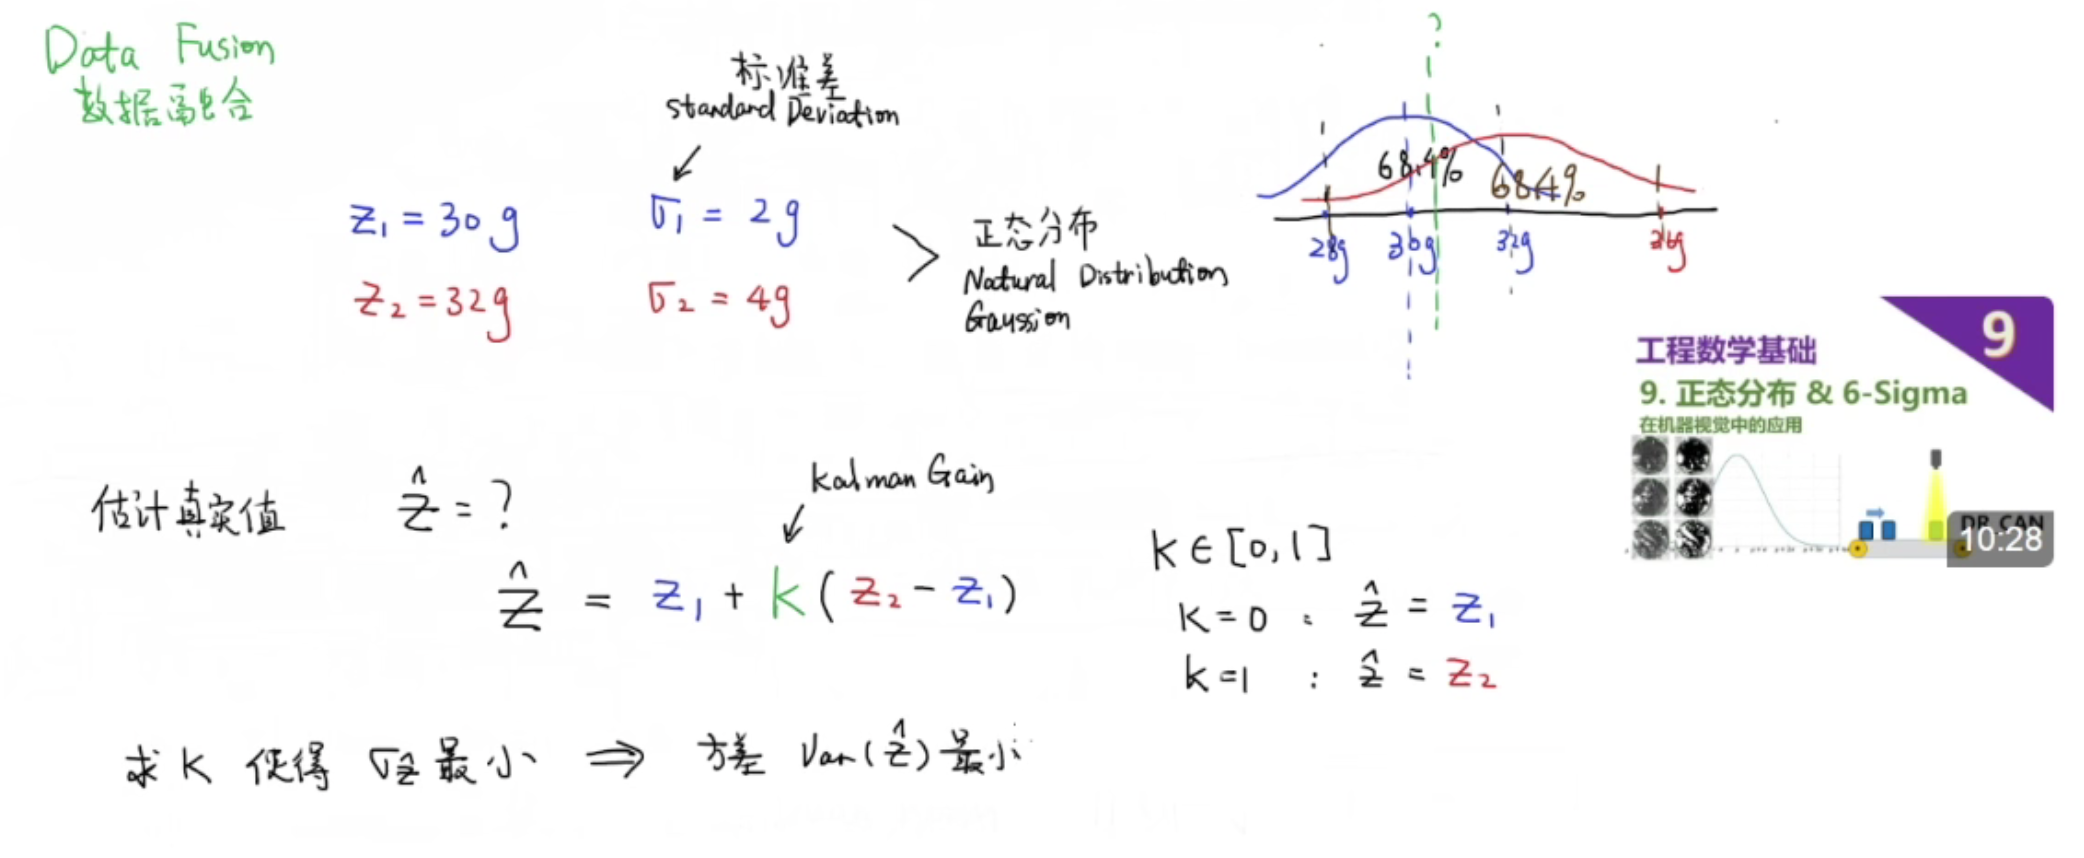 Data Fusion
数据融合
标准差
standard Deviation
z₁ = 30g σ₁ = 2g
z₂ = 32g σ₂ = 4g
正态分布
Natural Distribution
Gaussion
?
68.4% 68.4%
28g 30g 32g 36g
9
工程数学基础
9. 正态分布 & 6-Sigma
在机器视觉中的应用
DR_CAN
10:28
Kalman Gain
估计真实值 ẑ = ?
ẑ = z₁ + k(z₂ - z₁)
k∈[0,1]
k=0 : ẑ = z₁
k=1 : ẑ = z₂
求 k 使得 σẑ 最小 ⇒ 方差 Var(ẑ) 最小